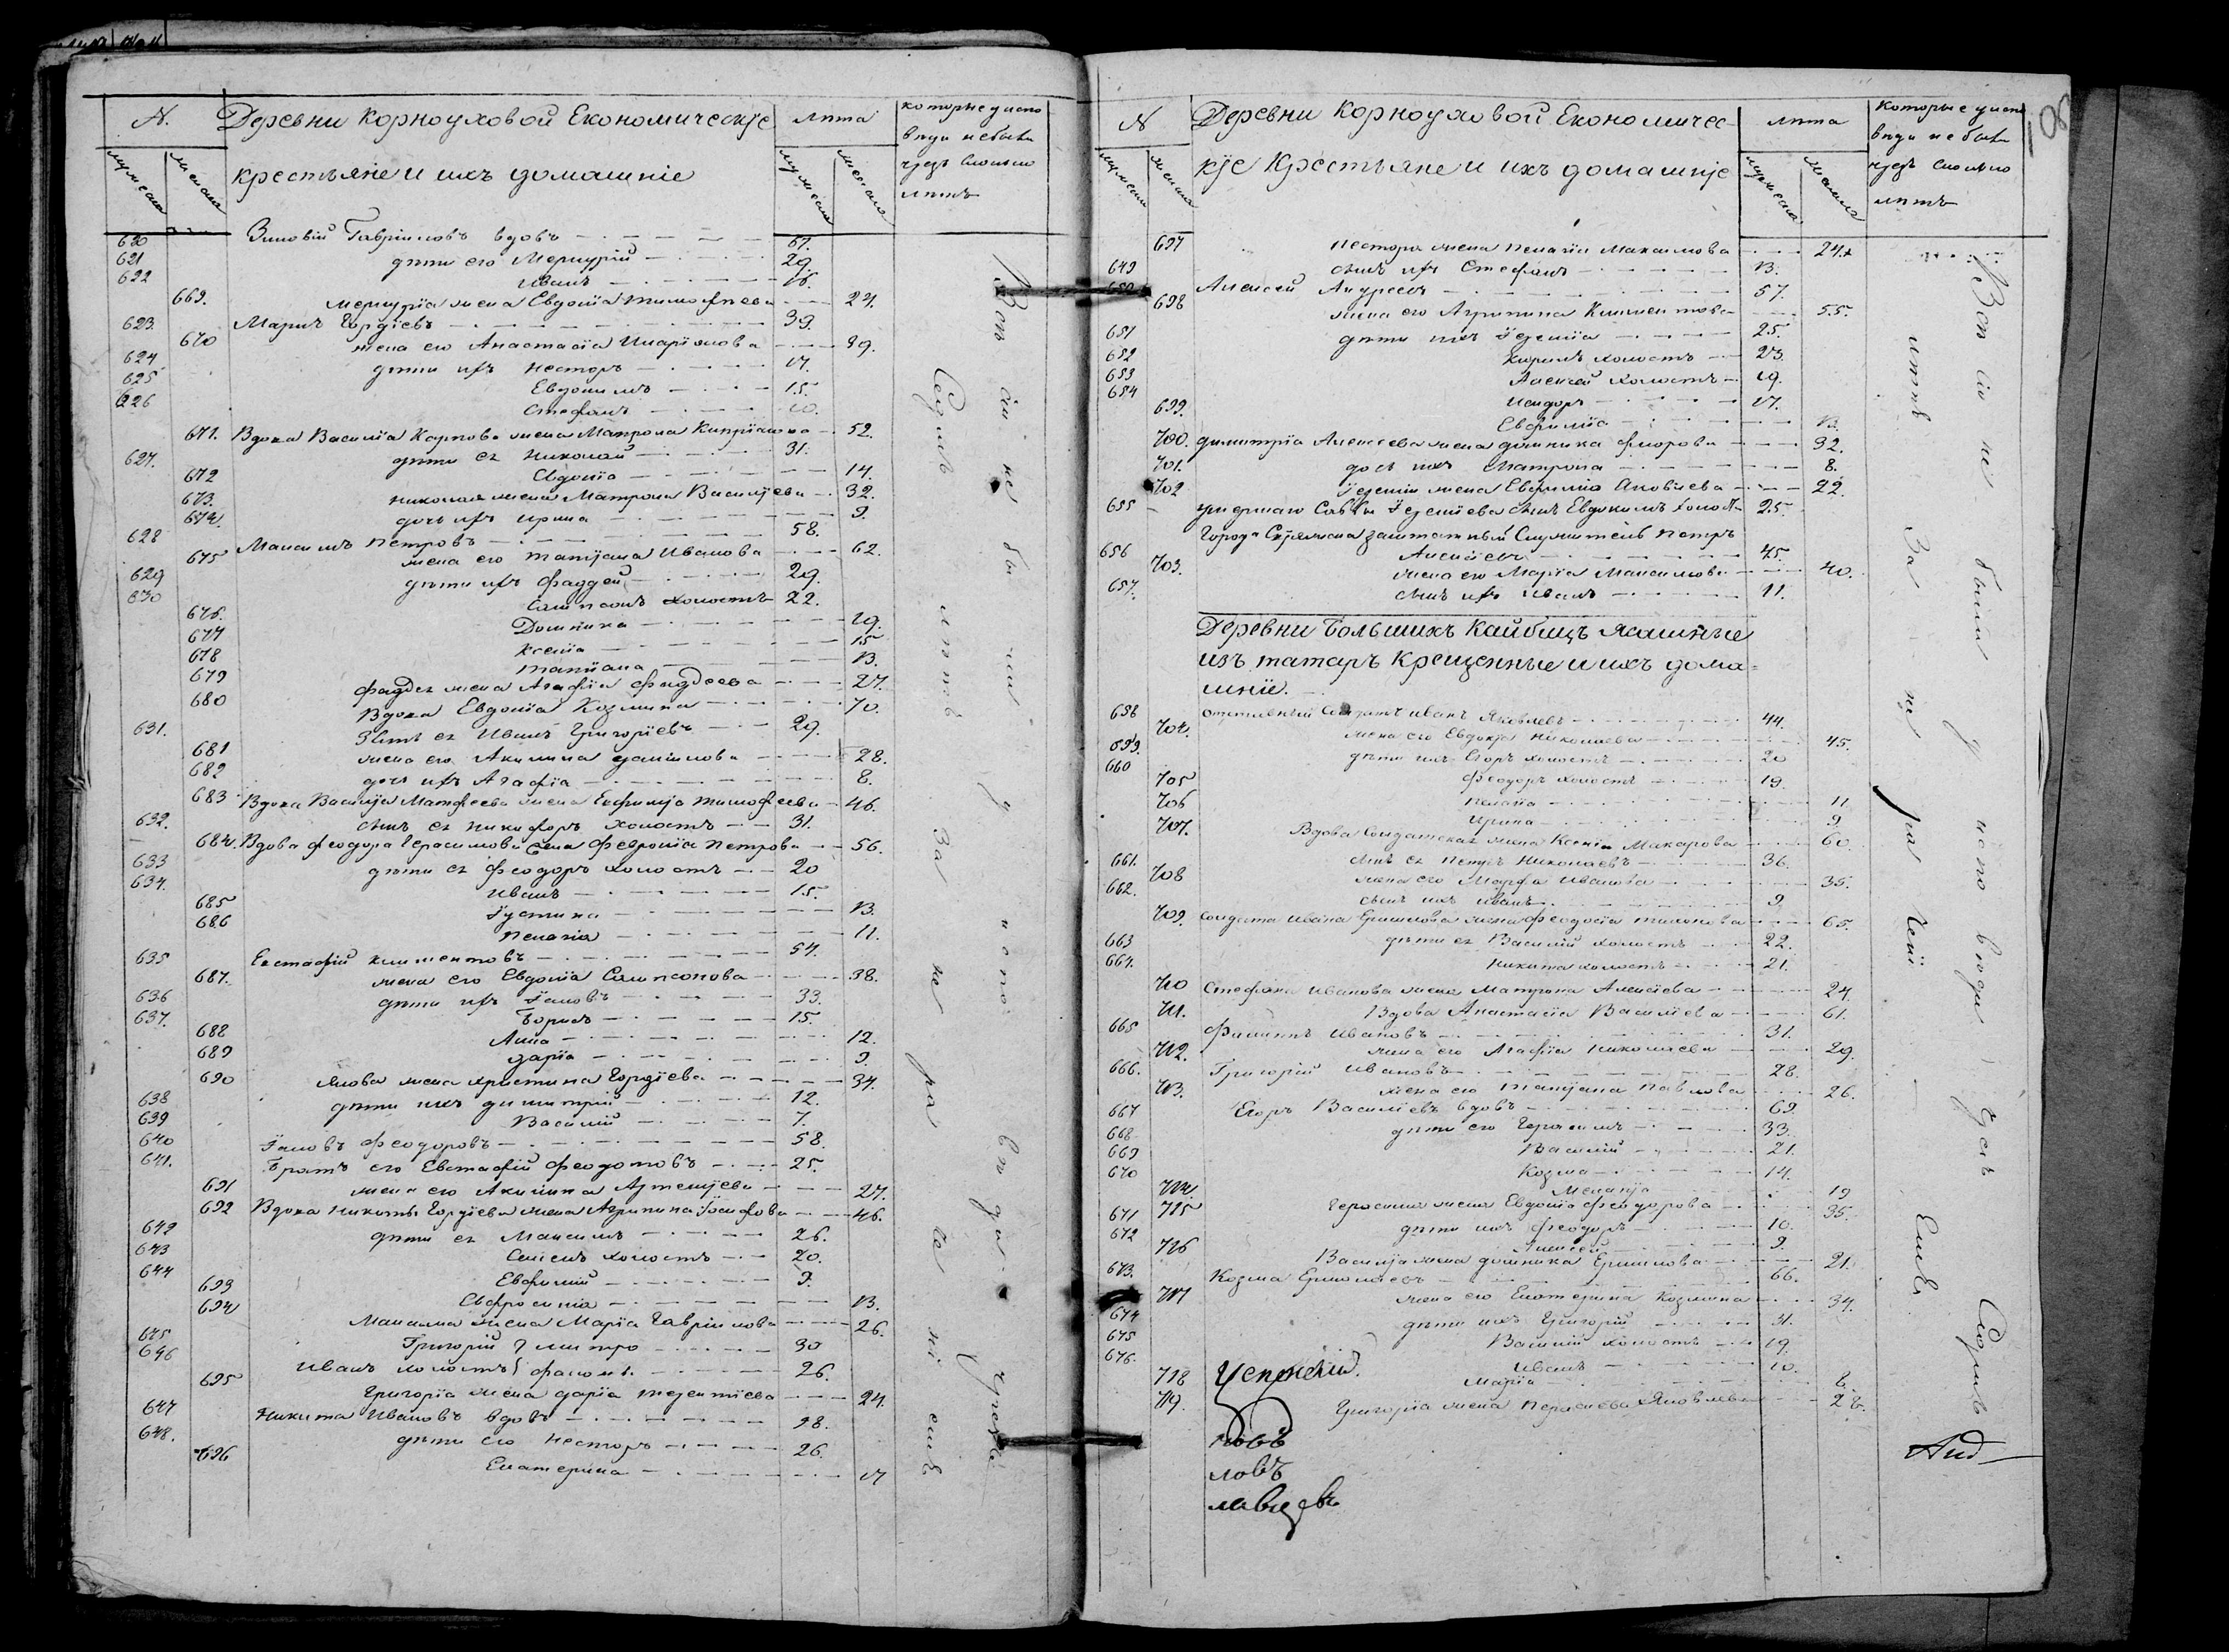 №
Деревни Корноуховой Економическіе
лѣта
которые у испо
мужеска
женска
крестьяне и ихъ домашніе
мужеска
женска
веди небыли
чрезъ сколько
лѣтъ
620 Зиновій Гавріиловъ вдовъ 67.
621 дѣти его Меркурій 29.
622 Иванъ 16.
669. Меркурія жена Евдокіа Тимофеева 27.
623. Гордѣевъ 39.
670 жена его Анастасіа Иларіонова 39.
624 дѣти ихъ Несторъ 17.
625 Евдокимъ 15.
626 Стефанъ 10.
671. Вдова Василіа Карпова жена Матрона Кипріанова 52.
627. дѣти ея Николай 31.
672 Евдокіа 14.
673. Николая жена Матрона Василіева 32.
674. дочь ихъ Ирина 9.
628 Максимъ Петровъ 58.
675 жена его Татіана Иванова 62.
629 дѣти ихъ Фаддей 29.
630 Сампсонъ холостъ 22.
676. Домника 19.
677 Ксеніа 15
678 Татіана 13.
679 Фаддея жена Агафіа Фаддеева 27.
680 Вдова Евдокіа Козмина 70.
631. Зять ея Иванъ Григоріевъ 29.
681 жена его Акилина Даніилова 28.
682 дочь ихъ Агафіа 8.
683 Вдова Василіа Матфеева жена Евфиміа Тимофеева 46.
632. сынъ ея Никифоръ холостъ 31.
684. Вдова Феодора Герасимова жена Феврониа Петрова 56.
633 дѣти ея Феодоръ холостъ 20
634. Иванъ 15.
685 Іустина 13.
686 Пелагіа 11.
635 Евстафій Климентовъ 54.
687. жена его Евдокіа Сампсонова 38.
636 дѣти ихъ Іаковъ 33.
637. Борисъ 15.
688 Анна 12.
689 Даріа 9.
690 Якова жена Христина Гордѣева 34.
638 дѣти ихъ Димитрій 12.
639 Василій 7.
640 Іаковъ Феодоровъ 58.
641. Братъ его Евстафій Феодотовъ 25.
691 жена его Акилина Артеміева 27.
692 Вдова Никиты Гордѣева жена Агрипина Іосифова 46.
642 дѣти ея Максимъ 26.
643 холостъ 20.
644 Евфимій 9.
693 Евфросиніа 13.
694 Максима жена Маріа Гавріилова 26.
645 Григорій Дмитро 30
646 Иванъ холостъ 26.
695 Григоріа жена Даріа Терентіева 24.
647 Никита Ивановъ вдовъ 98.
648. дѣти его Несторъ 26.
696 Екатерина 17
Всѣ сіи не были у испо веди чрезъ
Седмь лѣтъ За не ра че ні емъ
№
Деревни Корноуховой Економичес-
лѣта
Которые у испо
мужеска
женска
кіе Крестьяне и ихъ домашніе
мужеска
женска
веди небыли
чрезъ сколько
лѣтъ
697 Нестора жена Пелагіа Максимова 24.
649 сынъ ихъ Стефанъ 13.
650 Алексей Андреевъ 57.
698 жена его Агрипина Климентова 55.
651 дѣти ихъ 25.
652 Кирилъ холостъ 23.
653 Алексей холостъ 19.
654 Исидоръ 17.
699. Евфиміа 13.
700. Димитріа Алексеева жена Домника Фролова 32.
701. дочь ихъ Матрона 8.
702 жена Евфиміа Яковлева 22.
655 Саввы сынъ Евдокимъ холостъ 25.
Города заштатный Служитель Петръ
656 Алексіевъ 45.
703. жена его Маріа Максимова 40.
657. сынъ ихъ Иванъ 11.
Деревни Большихъ Кайбицъ Ясашные
изъ татаръ Крещенные и ихъ дома-
шніе.
658 отставный Солдатъ Иванъ Яковлевъ 44.
704. жена его Евдокіа Николаева 45.
659. дѣти ихъ Егоръ холостъ 20
660 Феодоръ холостъ 19.
705 Пелагіа 11
706 Ирина 9
707. Вдова Солдатская жена Ксеніа Макарова 60.
661. сынъ ея Петръ Николаевъ 36.
708 жена его Марфа Иванова 35.
662. сынъ ихъ Иванъ 9
709. Солдата Ивана Ермилова жена Феодосіа Тихонова 65.
663 дѣти ея Василій холостъ 22.
664. Никита холостъ 21.
710 Стефана Иванова жена Матрона Алексіева 24.
711. Вдова Анастасіа Василіева 61.
665 Филиппъ Ивановъ 31.
712. жена его Агафіа Николаева 29.
666. Григорій Ивановъ 28.
713. жена его Татіана Павлова 26.
667 Егоръ Василіевъ вдовъ 69.
668 дѣти его Герасимъ 33.
669 Василій 21.
670 Козма 14.
714. Меланіа 19
715 Герасима жена Евдокіа Феодорова 35.
671 дѣти ихъ Феодоръ 10.
672 Алексей 9.
716 Василіа жена Домника Ермилова 21.
673. Козма Ермолаевъ 66.
717 жена его Екатерина Козмина 34.
674 дѣти ихъ Григорій 31.
675 Василій холостъ 19.
676. Иванъ 10.
718 Маріа 8.
719. Григоріа жена Яковлева 28.
Успенскій.
новъ
ловъ
Всѣ сіи не были у испо веди Чрезъ Седмь
лѣтъ За не ра ченіемъ
Анд-